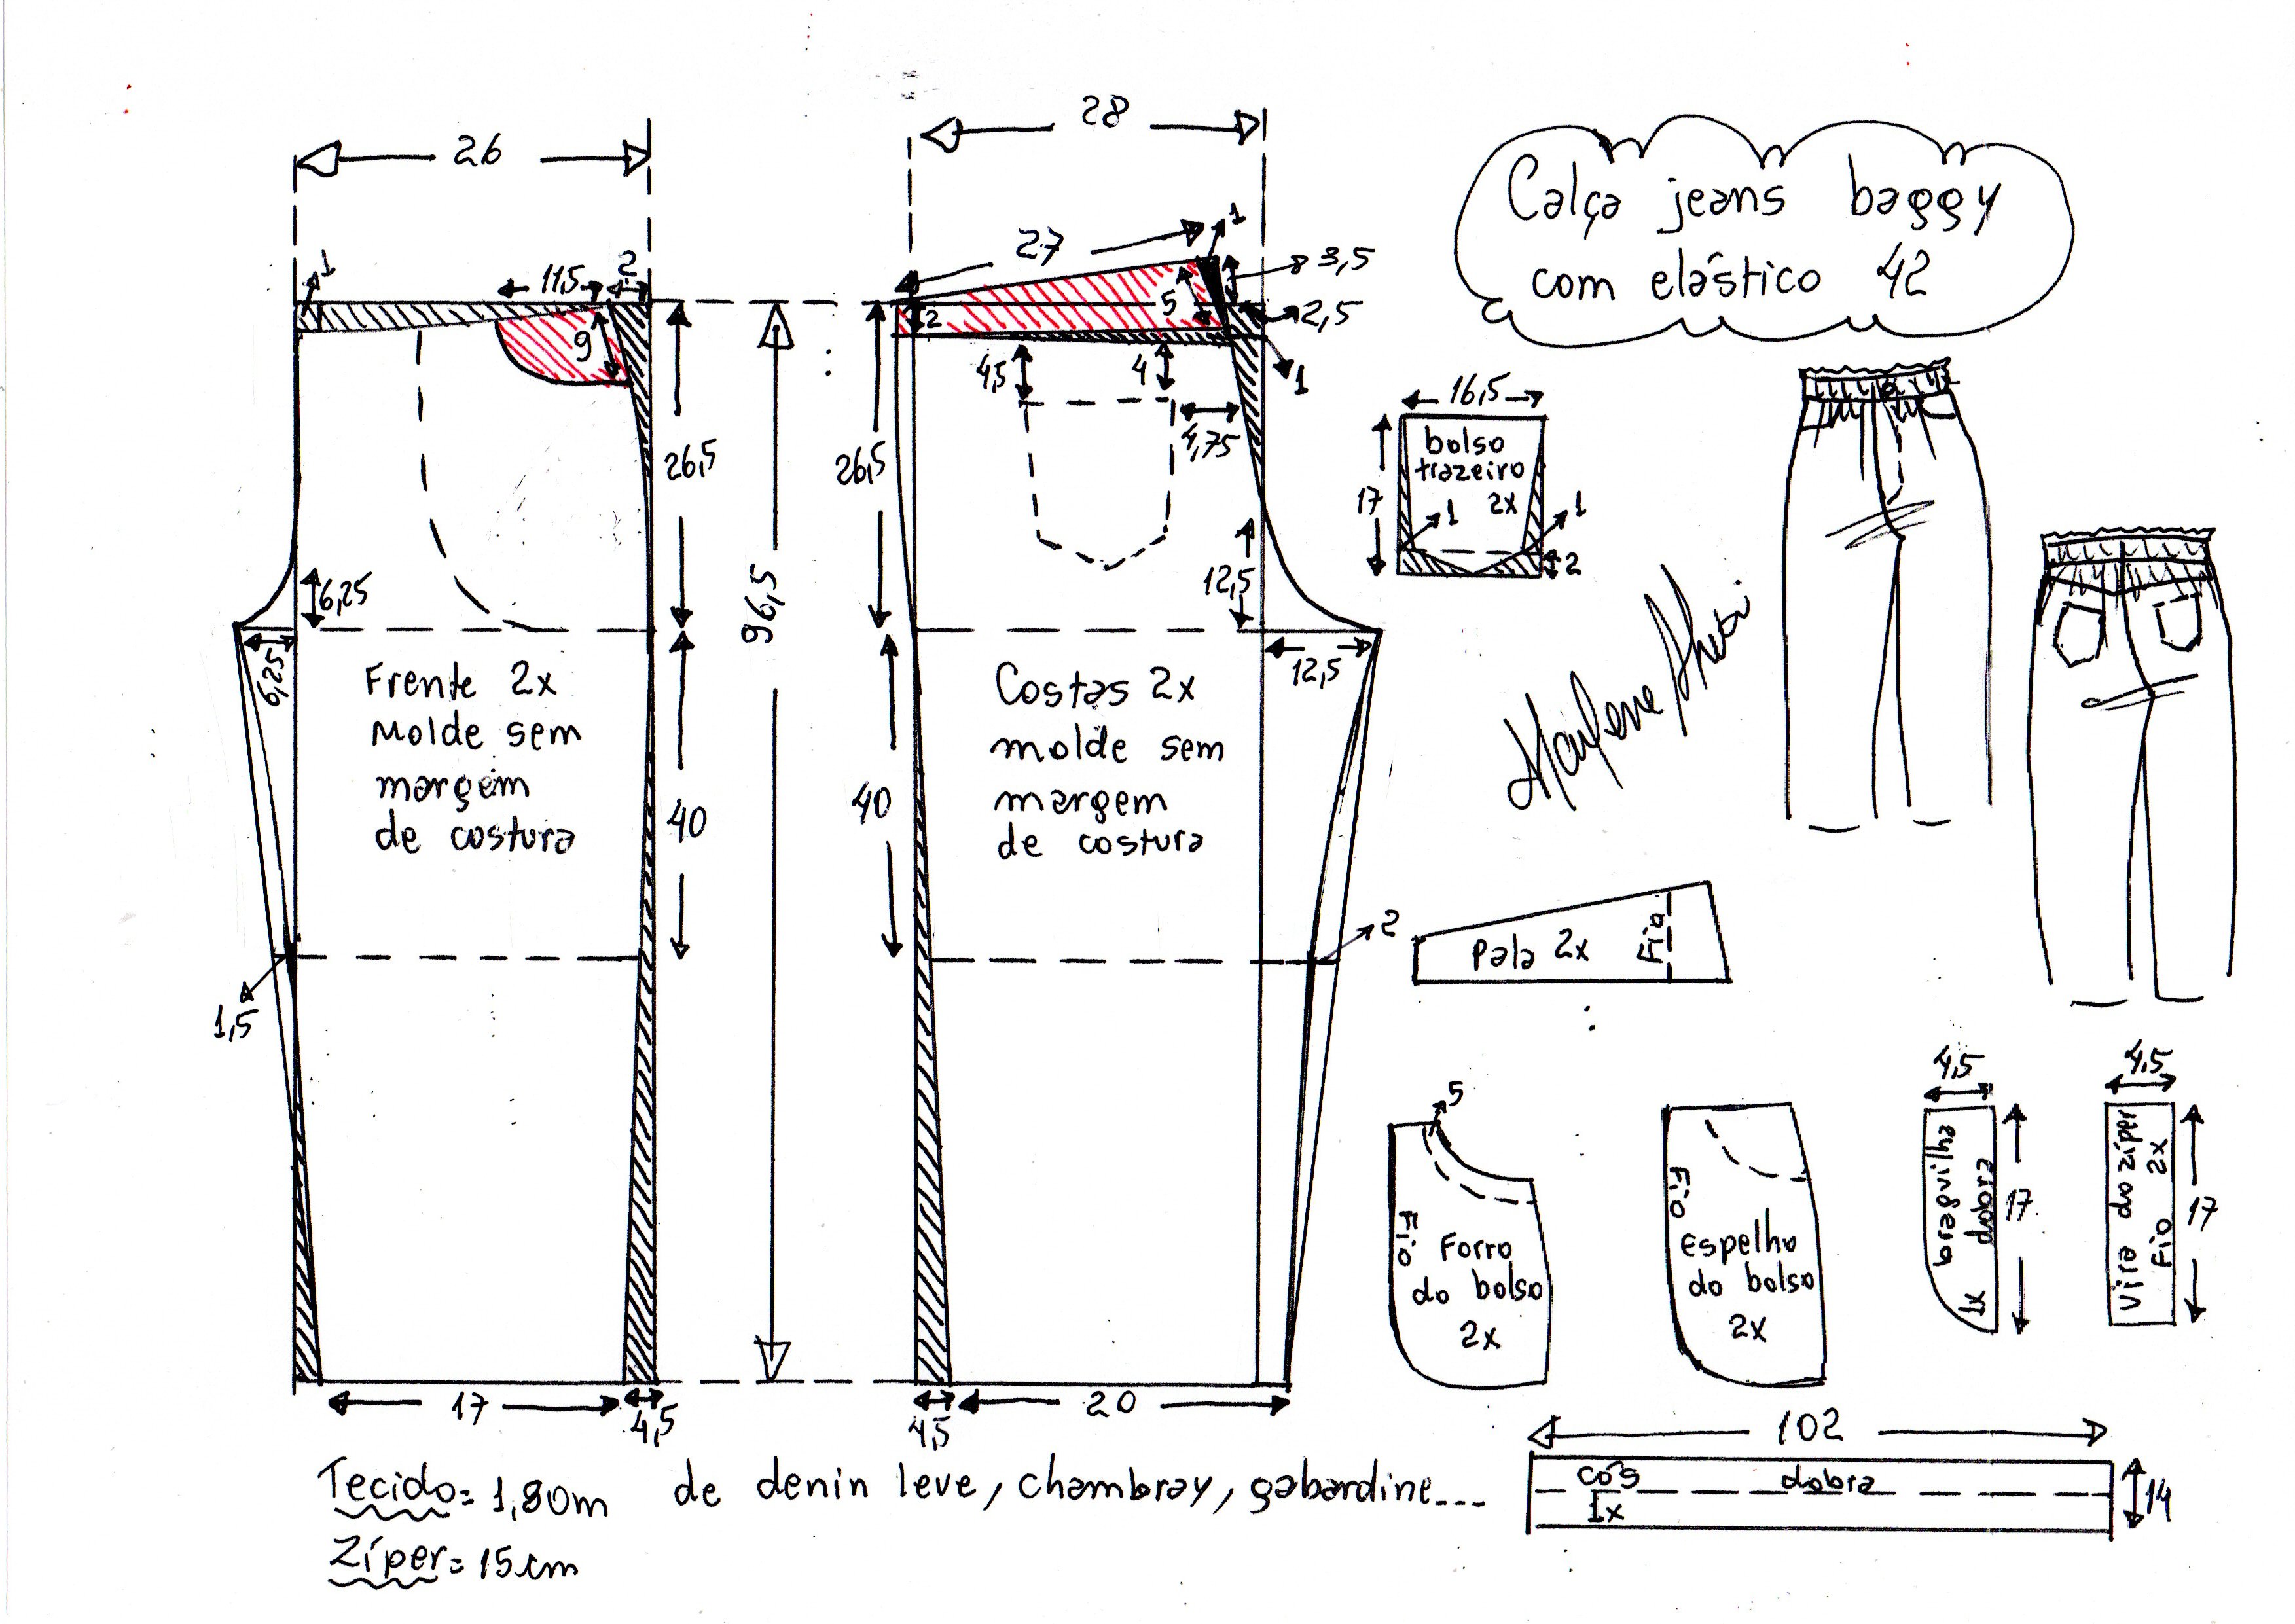 26
28
Calça jeans baggy
com elástico 42
1
11,5
2
9
26,5
6,25
6,25
Frente 2x
Molde sem
margem
de costura
40
1,5
17
4,5
96,5
27
1
3,5
5
2,5
2
1
4,5
4
4,75
26,5
12,5
12,5
Costas 2x
molde sem
margem
de costura
40
2
4,5
20
16,5
bolso
trazeiro
2x
17
1
1
2
Pala 2x
Fio
5
Fio
Forro
do bolso
2x
Fio
Espelho
do bolso
2x
4,5
braguilha
1x dobra
17
4,5
Vira do zíper
Fio 2x
17
102
cós dobra
1x
14
Tecido= 1,80m de denin leve, chambray, gabardine...
Zíper= 15cm